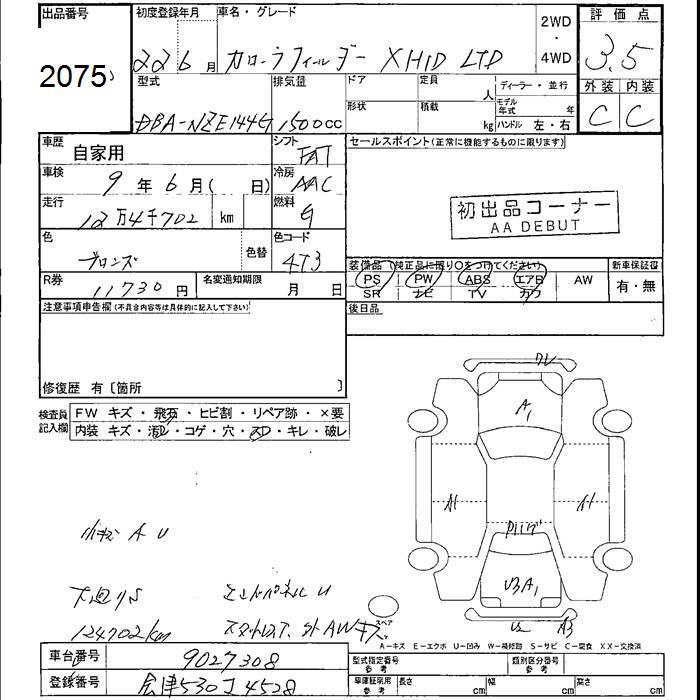 出品番号 初度登録年月 車名・グレード 2WD・4WD 評価点
2075 22 6月 カローラフィールダー X HID LTD 3.5
型式 排気量 ドア 定員 人 ディーラー・並行 外装 内装
形状 積載 kg モデル年式 年 ハンドル 左・右
DBA-NZE144G 1500cc C C
車歴 自家用 シフト FAT セールスポイント(正常に機能するものに限ります)
車検 9年6月( 日) 冷房 AAC
初出品コーナー
AA DEBUT
走行 12万4千702 km 燃料 G
色 ブロンズ 色替 色コード 4T3
装備品(純正品に限り○をつけてください) 新車保証書
PS PW ABS エアB AW 有・無
SR ナビ TV カワ
R券 11730円 名変通知期限 月 日
後日品
注意事項申告欄(不具合内容等は具体的に記入して下さい)
修復歴 有〔箇所 〕
検査員記入欄 FW キズ・飛石・ヒビ割・リペア跡・×要
内装 キズ・汚レ・コゲ・穴・スレ・キレ・破レ
ワレ
A1
A1
A1
U3 A1
U2 A3
小キズ A U
下廻りS エンドパネル U
124702km
スペア
A-キズ E-エクボ U-凹み W-補修跡 S-サビ C-腐食 XX-交換済
車台番号 9027308 型式指定番号 参考 類別区分番号 参考
登録番号 会津530 4528 車庫証明用 参考 長さ cm 幅 cm 高さ cm